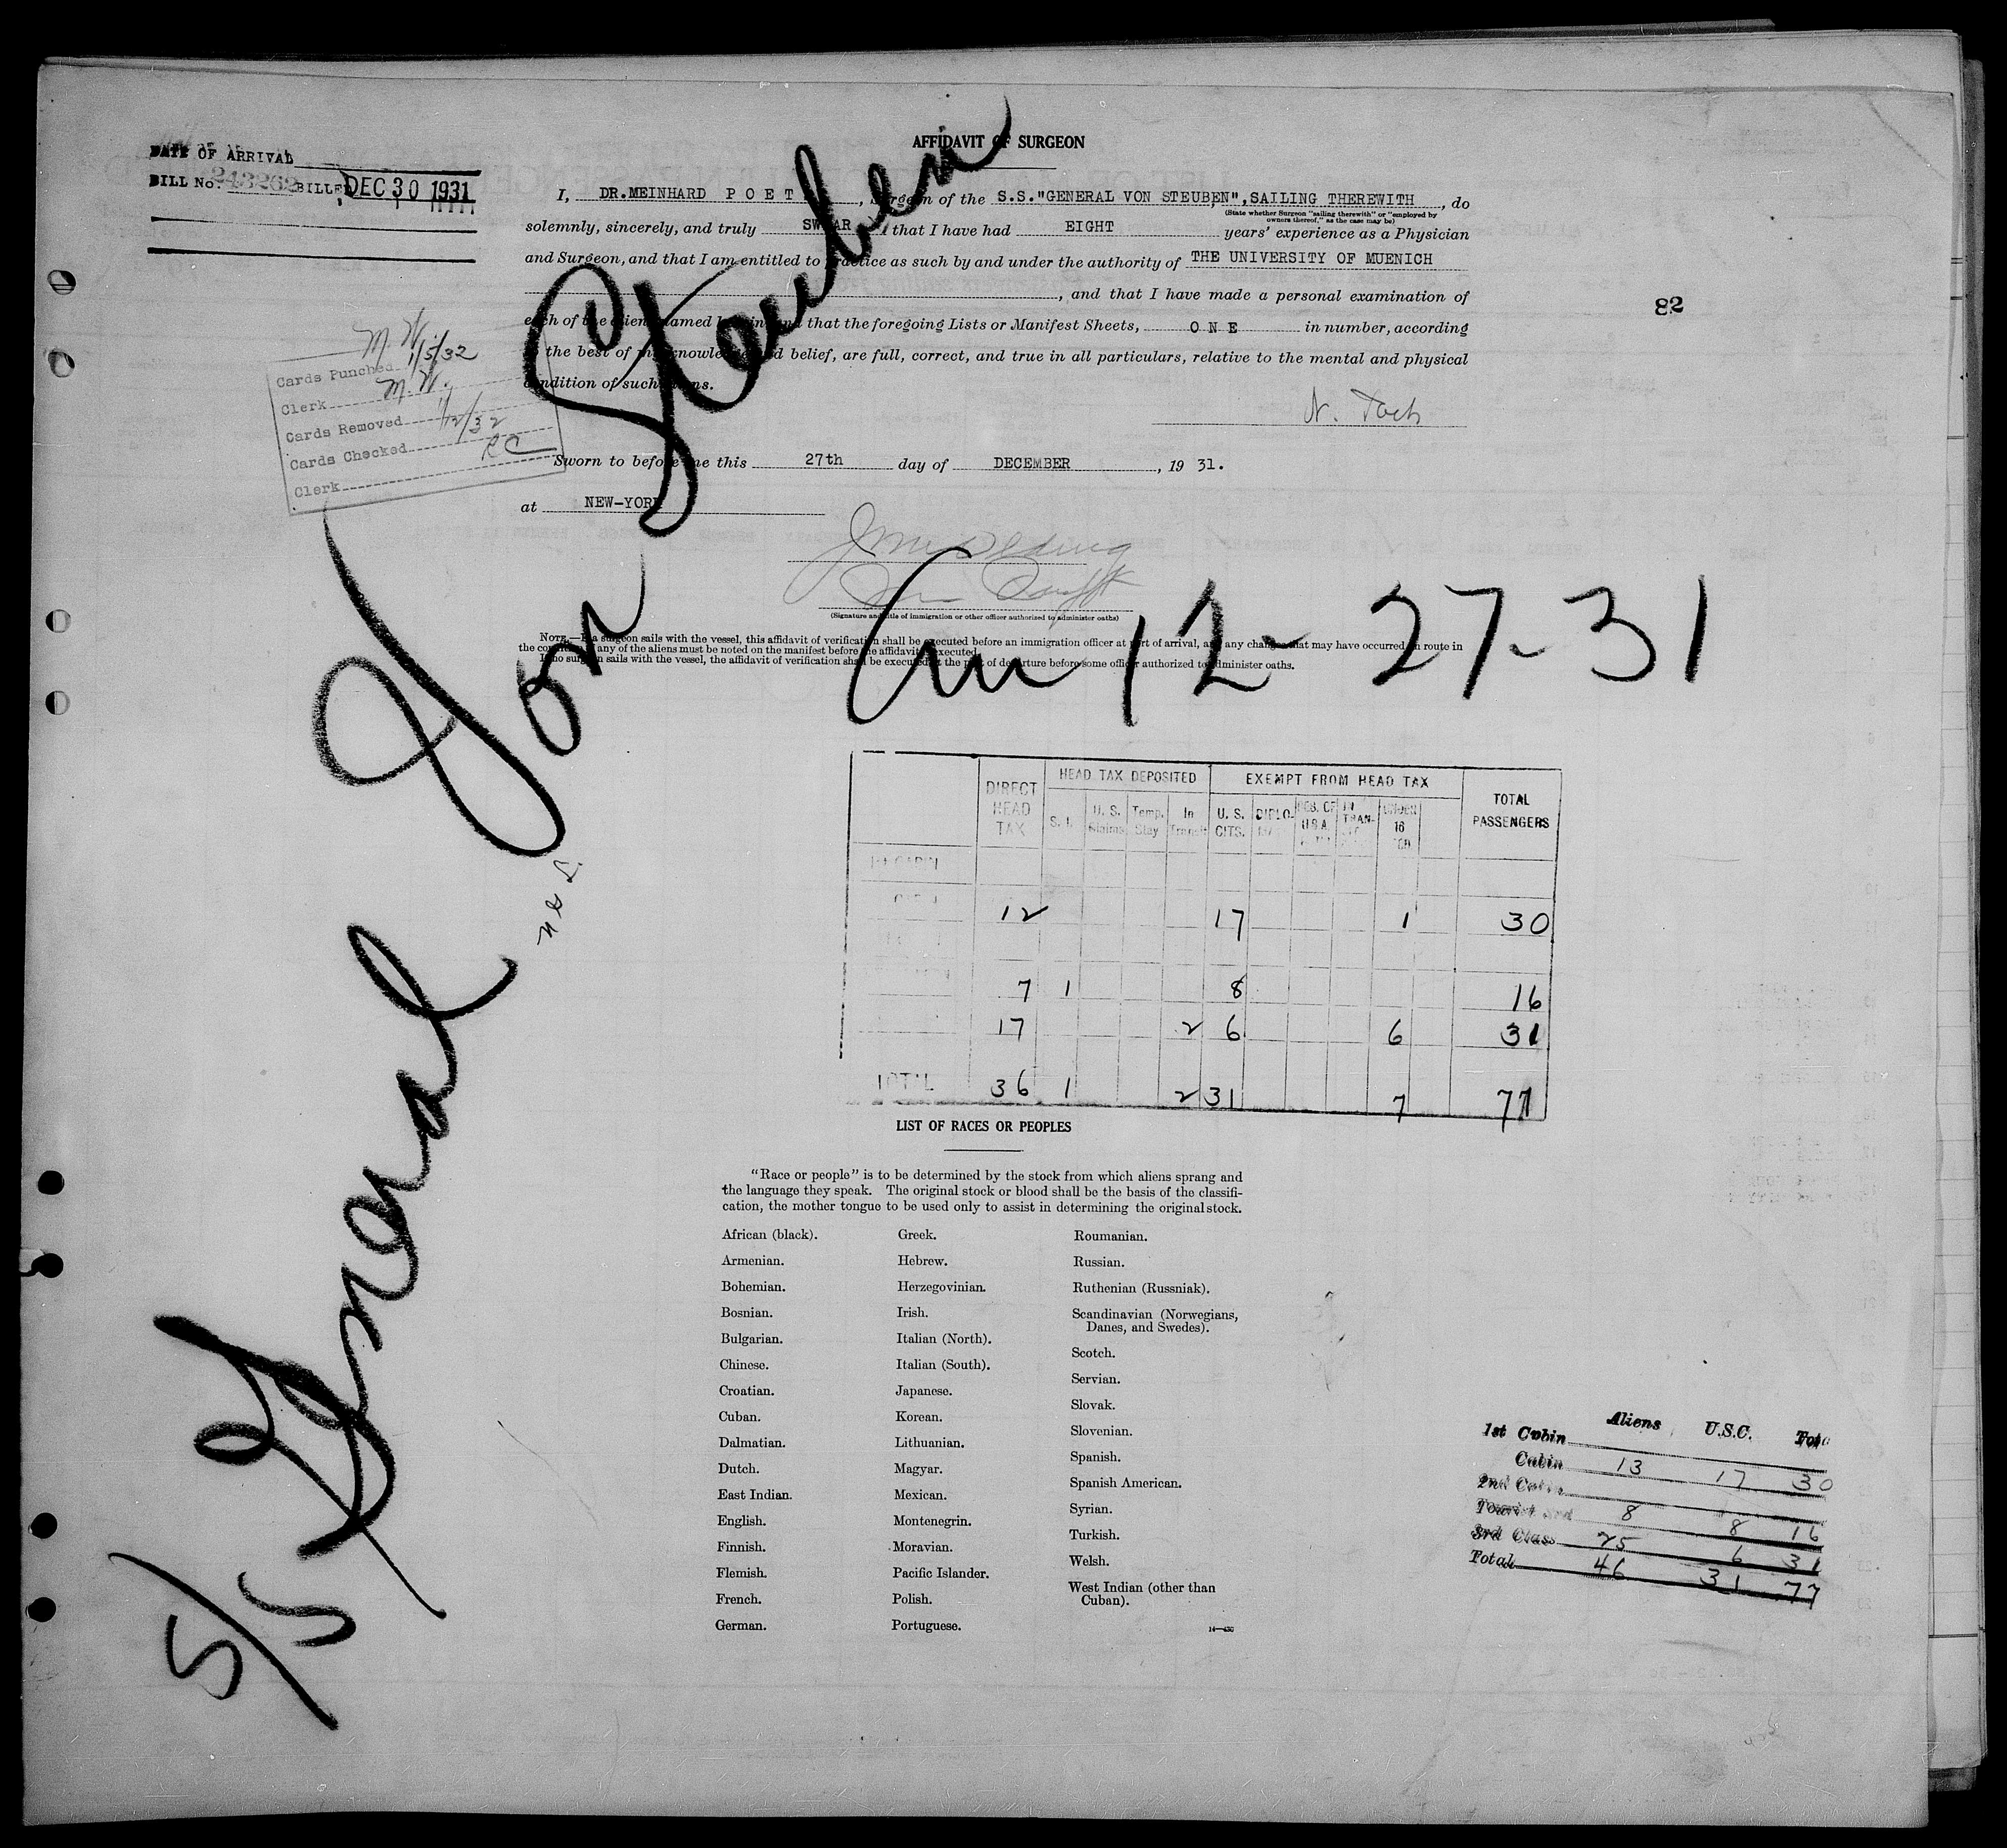 AFFIDAVIT OF SURGEON
DATE OF ARRIVAL
BILL No. 243262 BILLED DEC 30 1931
I, DR.MEINHARD P O E T , Surgeon of the S.S."GENERAL VON STEUBEN",SAILING THEREWITH , do
(State whether Surgeon "sailing therewith" or "employed by
owners thereof," as the case may be)
solemnly, sincerely, and truly SWEAR that I have had EIGHT years' experience as a Physician
and Surgeon, and that I am entitled to practice as such by and under the authority of THE UNIVERSITY OF MUENICH
, and that I have made a personal examination of
each of the aliens named herein and that the foregoing Lists or Manifest Sheets, O N E in number, according
to the best of my knowledge and belief, are full, correct, and true in all particulars, relative to the mental and physical
condition of such aliens.
82
M. W. 1/5/32
Cards Punched
Clerk M. W.
Cards Removed 1/12/32
Cards Checked RC
Clerk
Sworn to before me this 27th day of DECEMBER , 19 31.
at NEW-YORK
(Signature and title of immigration or other officer authorized to administer oaths)
NOTE.—If a surgeon sails with the vessel, this affidavit of verification shall be executed before an immigration officer at port of arrival, and any change that may have occurred in route in
the condition of any of the aliens must be noted on the manifest before the affidavit is executed.
If no surgeon sails with the vessel, the affidavit of verification shall be executed at the port of departure before some officer authorized to administer oaths.
S/S General Von Steuben
12-27-31
DIRECT HEAD TAX HEAD TAX DEPOSITED EXEMPT FROM HEAD TAX TOTAL PASSENGERS
S. I. U. S. Temp. Stay In Transit U. S. CITS. DIPLO- RES. OF U.S.A. IN TRAN- UNDER 16
12 17 1 30
7 1 8 16
17 2 6 6 31
TOTAL 36 1 2 31 7 77
LIST OF RACES OR PEOPLES
"Race or people" is to be determined by the stock from which aliens sprang and
the language they speak. The original stock or blood shall be the basis of the classifi-
cation, the mother tongue to be used only to assist in determining the original stock.
African (black).
Armenian.
Bohemian.
Bosnian.
Bulgarian.
Chinese.
Croatian.
Cuban.
Dalmatian.
Dutch.
East Indian.
English.
Finnish.
Flemish.
French.
German.
Greek.
Hebrew.
Herzegovinian.
Irish.
Italian (North).
Italian (South).
Japanese.
Korean.
Lithuanian.
Magyar.
Mexican.
Montenegrin.
Moravian.
Pacific Islander.
Polish.
Portuguese.
Roumanian.
Russian.
Ruthenian (Russniak).
Scandinavian (Norwegians,
Danes, and Swedes).
Scotch.
Servian.
Slovak.
Slovenian.
Spanish.
Spanish American.
Syrian.
Turkish.
Welsh.
West Indian (other than
Cuban).
14—430
Aliens U.S.C. Total
1st Cabin
Cabin 13 17 30
2nd Cabin
Tourist 3rd 8 8 16
3rd Class 25 6 31
Total 46 31 77